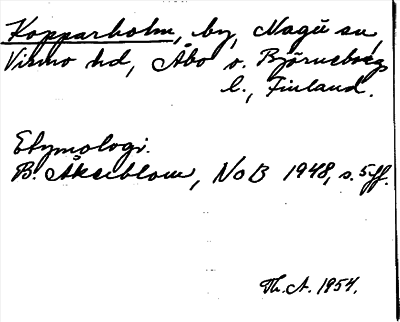 Kopparholm, by, Nagu sn,
Virmo hd, Åbo o. Björneborgs
l., Finland.
Etymologi.
B. Åkerblom, NoB 1948, s. 5 ff.
Th. A. 1954.